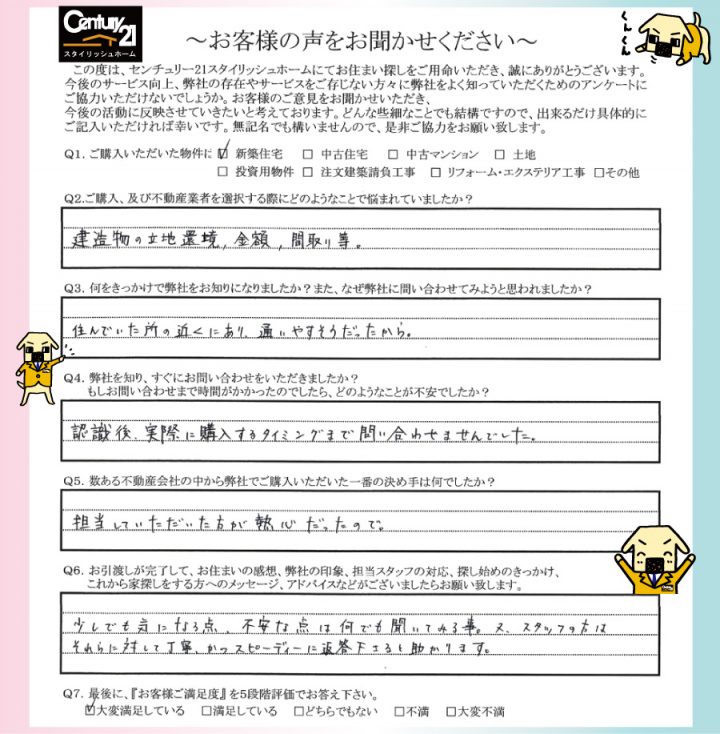 Century 21
スタイリッシュホーム
～お客様の声をお聞かせください～
くんくん
この度は、センチュリー21スタイリッシュホームにてお住まい探しをご用命いただき、誠にありがとうございます。
今後のサービス向上、弊社の存在やサービスをご存じない方々に弊社をよく知っていただくためのアンケートに
ご協力いただけないでしょうか。お客様のご意見をお聞かせいただき、
今後の活動に反映させていきたいと考えております。どんな些細なことでも結構ですので、出来るだけ具体的に
ご記入いただければ幸いです。無記名でも構いませんので、是非ご協力をお願い致します。
Q1. ご購入いただいた物件は ☑ 新築住宅 □ 中古住宅 □ 中古マンション □ 土地
□ 投資用物件 □ 注文建築請負工事 □ リフォーム・エクステリア工事 □その他
Q2.ご購入、及び不動産業者を選択する際にどのようなことで悩まれていましたか？
建造物の立地環境,金額,間取り等。
Q3. 何をきっかけで弊社をお知りになりましたか？また、なぜ弊社に問い合わせてみようと思われましたか？
住んでいた所の近くにあり、通いやすそうだったから。
Q4. 弊社を知り、すぐにお問い合わせをいただきましたか？
もしお問い合わせまで時間がかかったのでしたら、どのようなことが不安でしたか？
認識後、実際に購入するタイミングまで問い合わせませんでした。
Q5. 数ある不動産会社の中から弊社でご購入いただいた一番の決め手は何でしたか？
担当していただいた方が熱心だったので。
Q6. お引渡しが完了して、お住まいの感想、弊社の印象、担当スタッフの対応、探し始めのきっかけ、
これから家探しをする方へのメッセージ、アドバイスなどがございましたらお願い致します。
少しでも気になる点、不安な点は何でも聞いてみる事。又、スタッフの方は
それらに対して丁寧、かつスピーディーに返答下さると助かります。
Q7. 最後に、『お客様ご満足度』を5段階評価でお答え下さい。
☑大変満足している □満足している □どちらでもない □不満 □大変不満